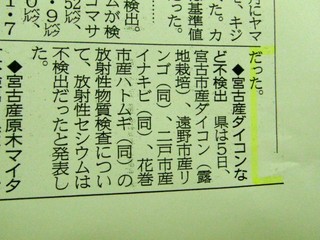 にヤマ
、キジ
た。カ
基準値
った。
ムが検
検出。
コマサ
52ベクレル
・9ベクレル
1・7
だった。
◆宮古産ダイコンな
ど不検出 県は5日、
宮古市産ダイコン(露
地栽培)、遠野市産リ
ンゴ(同)、二戸市産
イナキビ(同)、花巻
市産ハトムギ(同)の
放射性物質検査につい
て、放射性セシウムは
不検出だったと発表し
た。
◆宮古産原木マイタ